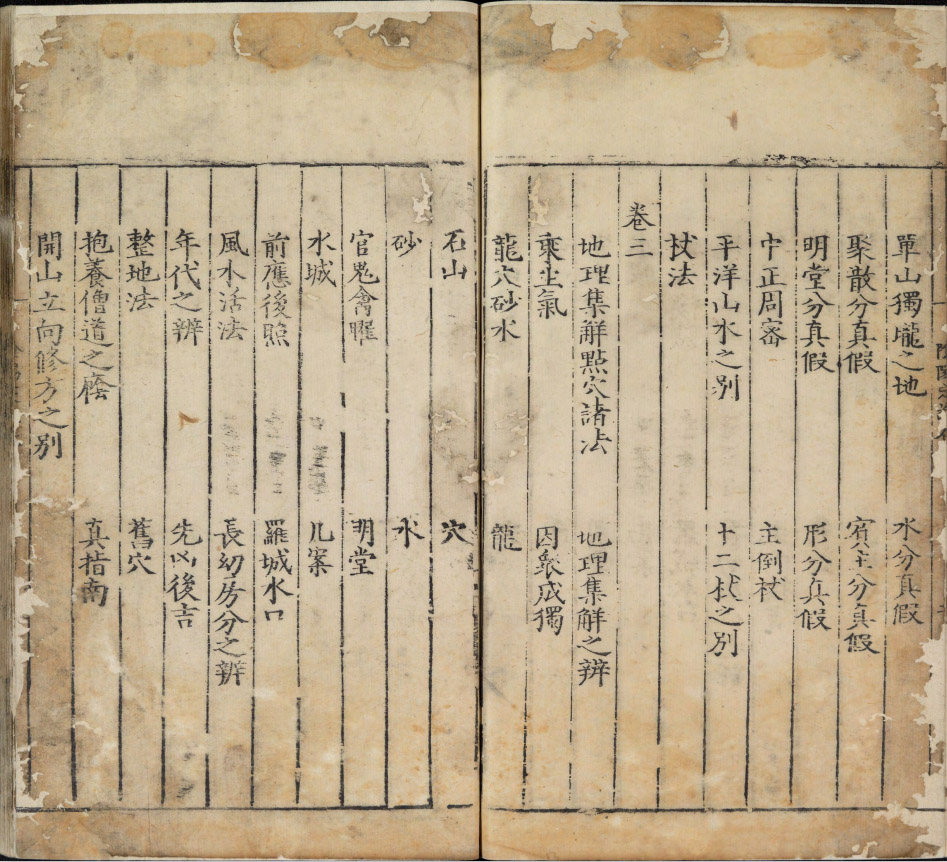 單山獨壠之地　水分真假
聚散分真假　賓主分真假
明堂分真假　形分真假
中正周密　主倒杖
平洋山水之别　十二杖之別
杖法
卷三
地理集解點穴諸法　地理集解之辨
乘生氣　因衆成獨
龍穴砂水　龍
石山　穴
砂　水
官鬼禽曜　明堂
水城　几案
前應後照　羅城水口
風水活法　長幼房分之辨
年代之辨　先凶後吉
整地法　舊穴
抱養僧道之廕　真指南
開山立向修方之别